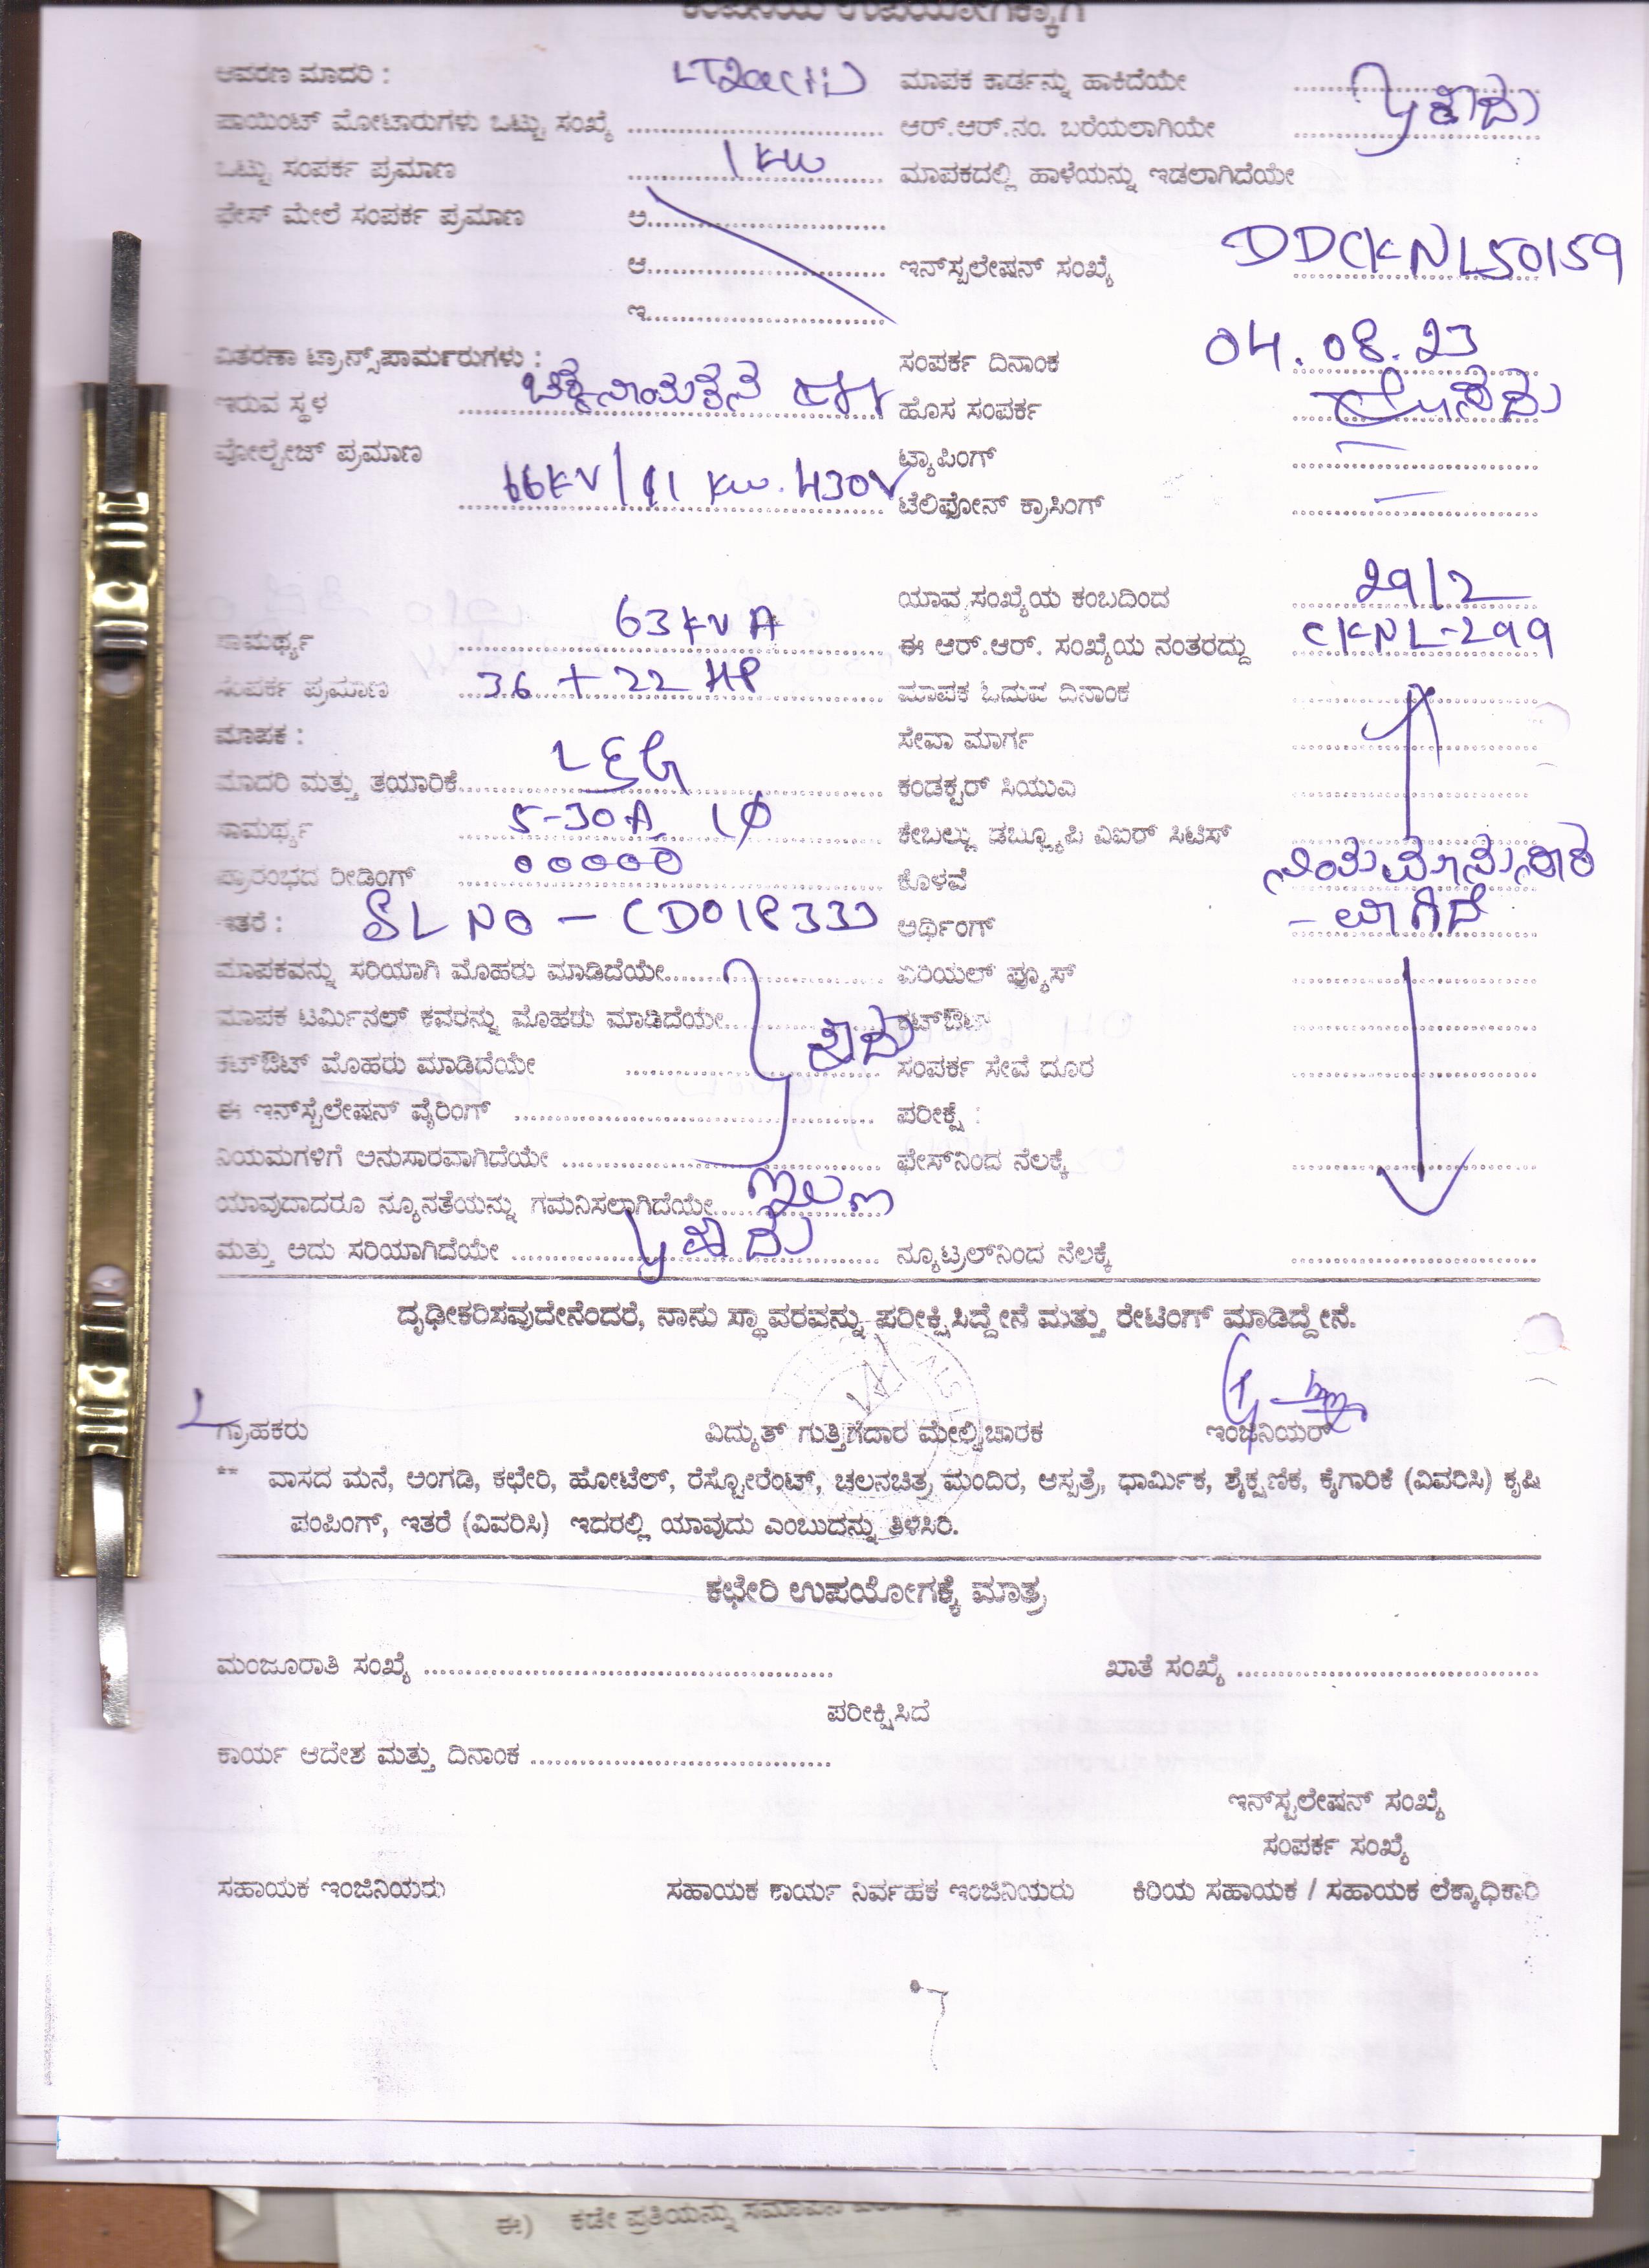 ಕಂಪನಿಯ ಉಪಯೋಗಕ್ಕಾಗಿ
ಆವರಣ ಮಾದರಿ : ಮಾಪಕ ಕಾರ್ಡನ್ನು ಹಾಕಿದೆಯೇ
ಪಾಯಿಂಟ್ ಮೋಟಾರುಗಳು ಒಟ್ಟು ಸಂಖ್ಯೆ ಆರ್.ಆರ್.ನಂ. ಬರೆಯಲಾಗಿಯೇ ಹೌದು
ಒಟ್ಟು ಸಂಪರ್ಕ ಪ್ರಮಾಣ 1 KW ಮಾಪಕದಲ್ಲಿ ಹಾಳೆಯನ್ನು ಇಡಲಾಗಿದೆಯೇ
ಫೇಸ್ ಮೇಲೆ ಸಂಪರ್ಕ ಪ್ರಮಾಣ ಅ
ಆ ಇನ್‌ಸ್ಟಲೇಷನ್ ಸಂಖ್ಯೆ DDCKNL50159
ಇ
ವಿತರಣಾ ಟ್ರಾನ್ಸ್‌ಪಾರ್ಮರುಗಳು : ಸಂಪರ್ಕ ದಿನಾಂಕ 04.08.23
ಇರುವ ಸ್ಥಳ ಹೊಸ ಸಂಪರ್ಕ
ವೋಲ್ಟೇಜ್ ಪ್ರಮಾಣ ಟ್ಯಾಪಿಂಗ್
66KV/11 KW. 430V ಟೆಲಿಫೋನ್ ಕ್ರಾಸಿಂಗ್
ಯಾವ ಸಂಖ್ಯೆಯ ಕಂಬದಿಂದ 29/2
ಸಾಮರ್ಥ್ಯ 63 KVA ಈ ಆರ್.ಆರ್. ಸಂಖ್ಯೆಯ ನಂತರದ್ದು CKNL-299
ಸಂಪರ್ಕ ಪ್ರಮಾಣ 36 + 22 HP ಮಾಪಕ ಓದುವ ದಿನಾಂಕ
ಮಾಪಕ : ಸೇವಾ ಮಾರ್ಗ
ಮಾದರಿ ಮತ್ತು ತಯಾರಿಕೆ L&G ಕಂಡಕ್ಟರ್ ಸಿಯುವಿ
ಸಾಮರ್ಥ್ಯ 5-30A 1Φ ಕೇಬಲ್ಲು ಡಬ್ಲ್ಯೂಪಿ ವಿಐರ್ ಸಿಟಿಸ್
ಪ್ರಾರಂಭದ ರೀಡಿಂಗ್ 00000 ಕೊಳವೆ ನಿಯಮಾನುಸಾರ
ಇತರೆ : SL NO - ಅರ್ಥಿಂಗ್ - ವಾಗಿದೆ
ಮಾಪಕವನ್ನು ಸರಿಯಾಗಿ ಮೊಹರು ಮಾಡಿದೆಯೇ ಏರಿಯಲ್ ಫ್ಯೂಸ್
ಮಾಪಕ ಟರ್ಮಿನಲ್ ಕವರನ್ನು ಮೊಹರು ಮಾಡಿದೆಯೇ ಹೌದು ಕಟ್‌ಔಟ್
ಕಟ್‌ಔಟ್ ಮೊಹರು ಮಾಡಿದೆಯೇ ಸಂಪರ್ಕ ಸೇವೆ ದೂರ
ಈ ಇನ್‌ಸ್ಟೆಲೇಷನ್ ವೈರಿಂಗ್ ಪರೀಕ್ಷೆ :
ನಿಯಮಗಳಿಗೆ ಅನುಸಾರವಾಗಿದೆಯೇ ಫೇಸ್‌ನಿಂದ ನೆಲಕ್ಕೆ
ಯಾವುದಾದರೂ ನ್ಯೂನತೆಯನ್ನು ಗಮನಿಸಲಾಗಿದೆಯೇ ಇಲ್ಲ
ಮತ್ತು ಅದು ಸರಿಯಾಗಿದೆಯೇ ಹೌದು ನ್ಯೂಟ್ರಲ್‌ನಿಂದ ನೆಲಕ್ಕೆ
ದೃಢೀಕರಿಸವುದೇನೆಂದರೆ, ನಾನು ಸ್ಥಾವರವನ್ನು ಪರೀಕ್ಷಿಸಿದ್ದೇನೆ ಮತ್ತು ರೇಟಿಂಗ್ ಮಾಡಿದ್ದೇನೆ.
ಗ್ರಾಹಕರು ವಿದ್ಯುತ್ ಗುತ್ತಿಗೆದಾರ ಮೇಲ್ವಿಚಾರಕ ಇಂಜಿನಿಯರ್
** ವಾಸದ ಮನೆ, ಅಂಗಡಿ, ಕಛೇರಿ, ಹೋಟೆಲ್, ರೆಸ್ಟೋರೆಂಟ್, ಚಲನಚಿತ್ರ ಮಂದಿರ, ಆಸ್ಪತ್ರೆ, ಧಾರ್ಮಿಕ, ಶೈಕ್ಷಣಿಕ, ಕೈಗಾರಿಕೆ (ವಿವರಿಸಿ) ಕೃಷಿ
ಪಂಪಿಂಗ್, ಇತರೆ (ವಿವರಿಸಿ) ಇದರಲ್ಲಿ ಯಾವುದು ಎಂಬುದನ್ನು ತಿಳಿಸಿರಿ.
ಕಛೇರಿ ಉಪಯೋಗಕ್ಕೆ ಮಾತ್ರ
ಮಂಜೂರಾತಿ ಸಂಖ್ಯೆ ಖಾತೆ ಸಂಖ್ಯೆ
ಪರೀಕ್ಷಿಸಿದೆ
ಕಾರ್ಯ ಆದೇಶ ಮತ್ತು ದಿನಾಂಕ
ಇನ್‌ಸ್ಟಲೇಷನ್ ಸಂಖ್ಯೆ
ಸಂಪರ್ಕ ಸಂಖ್ಯೆ
ಸಹಾಯಕ ಇಂಜಿನಿಯರು ಸಹಾಯಕ ಕಾರ್ಯ ನಿರ್ವಹಕ ಇಂಜಿನಿಯರು ಕಿರಿಯ ಸಹಾಯಕ / ಸಹಾಯಕ ಲೆಕ್ಕಾಧಿಕಾರಿ
ಈ) ಕಡೇ ಪ್ರತಿಯನ್ನು